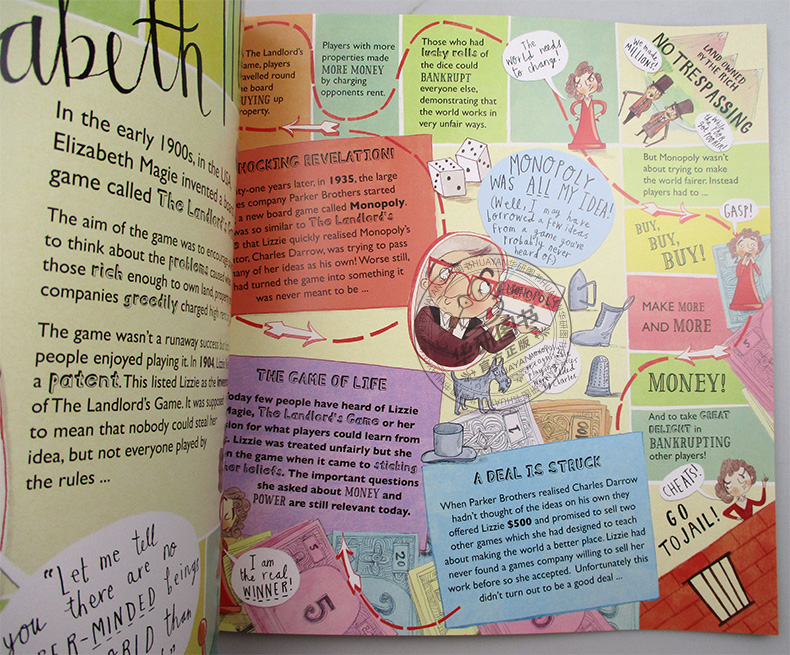 abeth
In the early 1900s, in the USA,
Elizabeth Magie invented a
game called The Landlord's
The aim of the game was to encourage
to think about the problems caused
those rich enough to own land, property
companies greedily charged high
The game wasn't a runaway success but
people enjoyed playing it. In 1904, Lizzie
a patent. This listed Lizzie as the
of The Landlord's Game. It was supposed
to mean that nobody could steal her
idea, but not everyone played by
the rules ...
"Let me tell
you there are no
-MINDED beings
than
The Landlord's
ame, players
avelled round
he board
UYING up
roperty.
Players with more
properties made
MORE MONEY
by charging
opponents rent.
Those who had
lucky rolls
of the dice could
BANKRUPT
everyone else,
demonstrating that
the world works in
very unfair ways.
The
world needs
to change!
We made
MILLIONS!
LAND OWNED
BY THE RICH
NO TRESPASSING
HOCKING REVELATION!
ty-one years later, in 1935, the large
es company Parker Brothers started
a new board game called Monopoly.
was so similar to The Landlord's
that Lizzie quickly realised Monopoly's
tor, Charles Darrow, was trying to pass
any of her ideas as his own! Worse still,
had turned the game into something it
was never meant to be ...
MONOPOLY
WAS ALL MY IDEA!
(Well, I may have
borrowed a few ideas
from a game you've
probably never
heard of)
MONOPOLY
But Monopoly wasn't
about trying to make
the world fairer. Instead
players had to ...
BUY,
BUY,
BUY!
GASP!
MAKE MORE
AND MORE
MONEY!
And to take GREAT
DELIGHT in
BANKRUPTING
other players!
CHEATS!
GO
TO JAIL!
THE GAME OF LIFE
Today few people have heard of Lizzie
Magie, The Landlord's Game or her
sion for what players could learn from
Lizzie was treated unfairly but she
on the game when it came to sticking
her beliefs. The important questions
she asked about MONEY and
POWER are still relevant today.
I am
the real
WINNER!
A DEAL IS STRUCK
When Parker Brothers realised Charles Darrow
hadn't thought of the ideas on his own they
offered Lizzie $500 and promised to sell two
other games which she had designed to teach
about making the world a better place. Lizzie had
never found a games company willing to sell her
work before so she accepted. Unfortunately this
didn't turn out to be a good deal ...
1
20
5
5